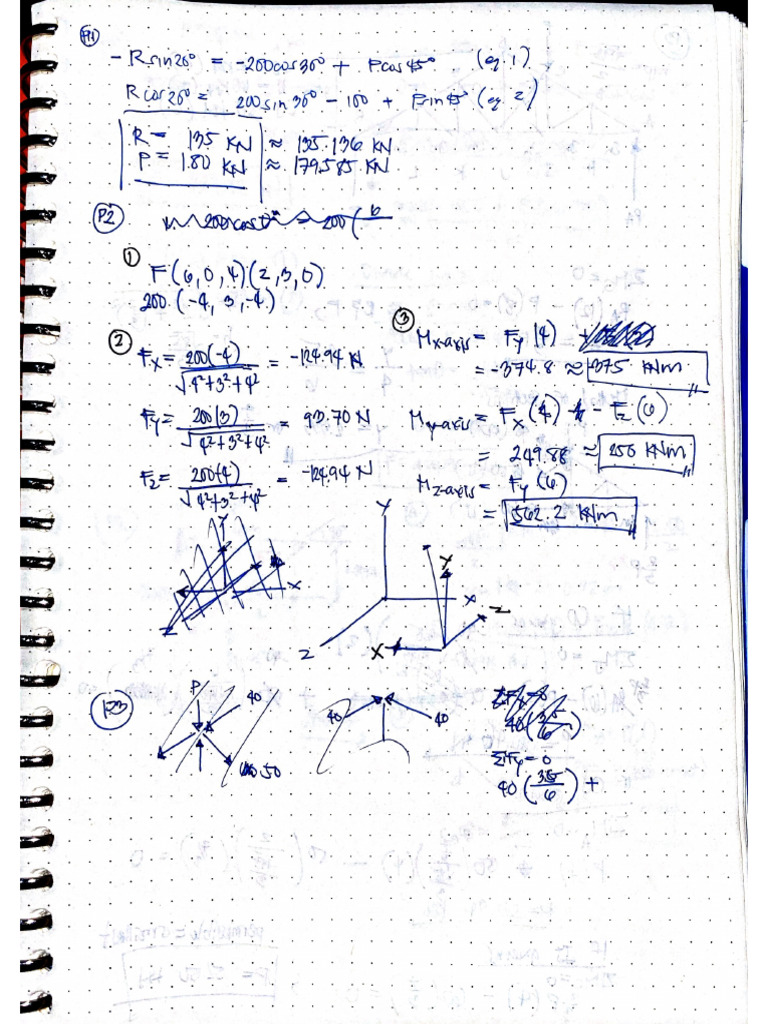 P1
- R sin20° = -200cos30° + Pcos45° (eq. 1)
R cos20° = 200 sin 30° - 100 + Psin 45° (eq. 2)
R = 135 KN ≈ 135.136 KN
P = 180 KN ≈ 179.585 KN
P2
①
F(6,0,4)(2,3,0)
200 (-4, 3, -4)
②
Fx = 200(-4) / √4²+3²+4² = -124.94 N
Fy = 200(3) / √4²+3²+4² = 93.70 N
Fz = 200(4) / √4²+3²+4² = -124.94 N
③
Mx-axis = Fy (4)
= -374.8 ≈ -375 KNm
My-axis = Fx (4) - Fz (6)
= 249.88 ≈ 250 KNm
Mz-axis = Fy (6)
= 562.2 KNm
Y
X
Z
Y
X
Z
X
Z
P3
P
40
50
40
40
ΣFy = 0